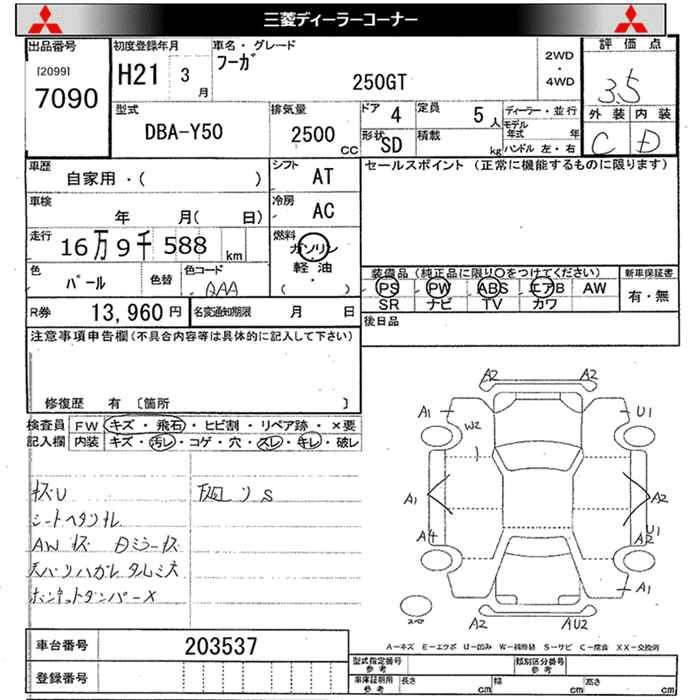 三菱ディーラーコーナー
出品番号
[2099]
7090
初度登録年月
H21 3 月
車名・グレード
フーガ
250GT
2WD
・
4WD
評価点
3.5
外装 内装
C D
型式
DBA-Y50
排気量
2500 CC
ドア 4
形状 SD
定員 5 人
積載 kg
ディーラー・並行
モデル年式 年
ハンドル 左・右
車歴
自家用・( )
シフト AT
セールスポイント (正常に機能するものに限ります)
車検
年 月( 日)
冷房 AC
走行
16万9千588 km
燃料
ガソリン
軽油
( ・ )
色
パール
色替
色コード
QAA
装備品(純正品に限り○をつけてください)
PS PW ABS エアB AW
SR ナビ TV カワ
新車保証書
有・無
R券 13,960円
名変通知期限 月 日
後日品
注意事項申告欄(不具合内容等は具体的に記入して下さい)
修復歴 有 [箇所 ]
検査員記入欄
FW キズ・飛石・ヒビ割・リペア跡・×要
内装 キズ・汚レ・コゲ・穴・スレ・キレ・破レ
シートヘタリ
AW キズ Dミラーキズ
天バリハガレ タルミ大
ボンネットダンパー×
A2 A2
A1 U1
W2
A1 A2
A4 U1
A2
A1
スペア
A2 AU2
A-キズ E-エクボ U-凹み W-補修跡 S-サビ C-腐食 XX-交換済
車台番号 203537
登録番号
型式指定番号 参考
類別区分番号 参考
車庫証明用 参考
長さ cm
幅 cm
高さ cm